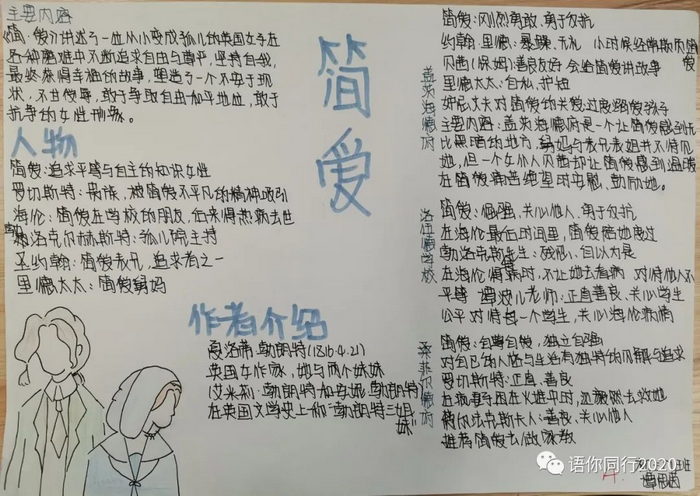 主要内容
《简·爱》讲述了一位从小变成孤儿的英国女子在
各种磨难中不断追求自由与尊严,坚持自我,
最终获得幸福的故事,塑造了一个不安于现
状,不甘受辱,敢于争取自由和平地位,敢于
抗争的女性形象。
人物
简爱:追求平等与自主的知识女性
罗切斯特:贵族,被简爱不平凡的精神吸引
海伦:简爱在学校的朋友,后来得热病去世
勃洛克尔赫斯特:孤儿院主持
圣约翰:简爱表兄,追求者之一
里德太太:简爱舅妈
简爱
作者介绍
夏洛蒂·勃朗特(1816.4.21)
英国女作家,她与两个妹妹
(艾米莉·勃朗特和安妮·勃朗特)
在英国文学史上称“勃朗特三姐
妹”
盖茨海德府
简爱:刚烈勇敢、勇于反抗
约翰·里德:暴躁、无礼 小时候经常欺负简爱
贝茜(保姆):善良友好 会给简爱讲故事
里德太太:自私、护短
主要内容:盖茨海德府是一个让简爱感到无
比黑暗的地方,舅妈与表兄表姐并不待见
她,但一个女仆人贝茜却让简爱感到温暖
在简爱痛苦绝望时安慰,鼓励她。
洛伍德学校
简爱:倔强、关心他人、勇于反抗
在海伦最后时间里,简爱陪她度过
勃洛克斯先生:残忍、自以为是
在海伦得病时,不让她去看病 对待他人不
平等 谭波儿老师:正直善良、关心学生
公平对待每一个学生,关心海伦病情
桑菲尔德府
简爱:自尊自爱,独立自强
对自己的人格与生活有独特的见解与追求
罗切斯特:正直、善良
在疯妻子困在火进中时,还毅然去救她
费尔法克斯夫人:善良、关心他人
推荐简爱去做家教
语你同行2020
A